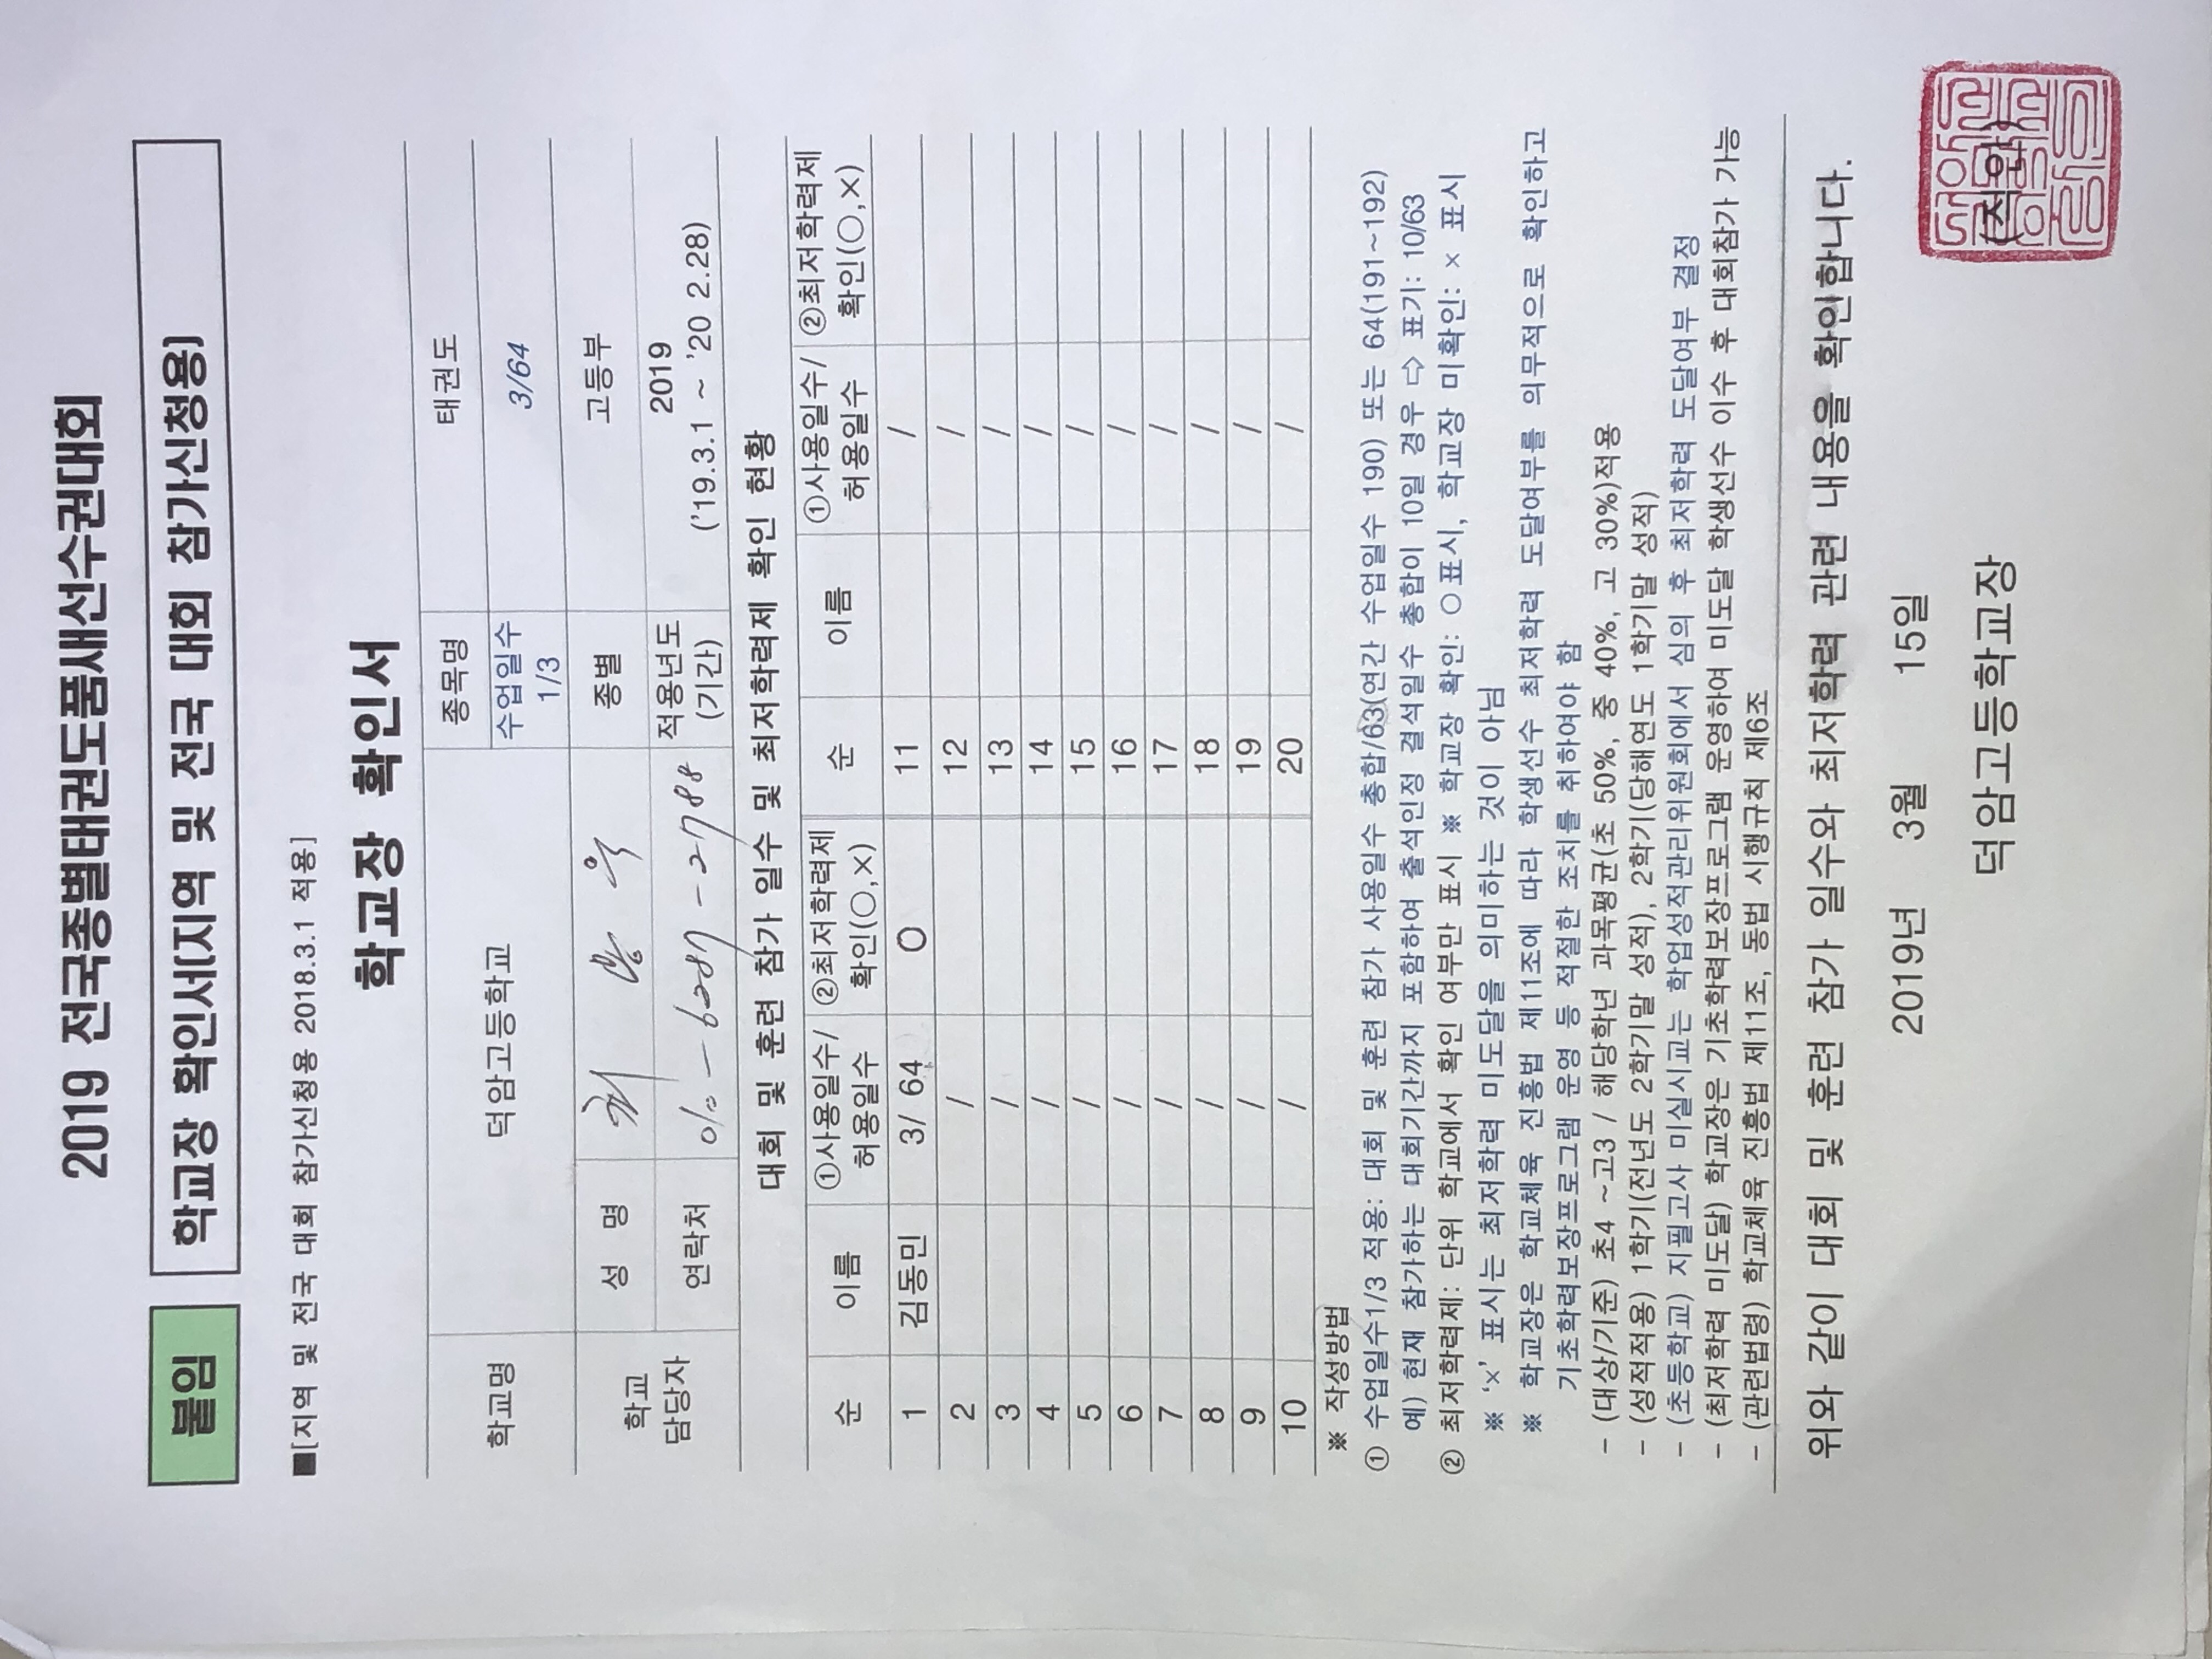 2019 전국종별태권도품새선수권대회
붙임 학교장 확인서(지역 및 전국 대회 참가신청용)
■[지역 및 전국 대회 참가신청용 2018.3.1 적용]
학교장 확인서
학교명 덕암고등학교 종목명 태권도
수업일수 1/3 3/64
학교 담당자 성 명 종별 고등부
연락처 010-6287-2788 적용년도 (기간) 2019 ('19.3.1 ~ '20 2.28)
대회 및 훈련 참가 일수 및 최저학력제 확인 현황
순 이름 ①사용일수/허용일수 ②최저학력제 확인(○,×) 순 이름 ①사용일수/허용일수 ②최저학력제 확인(○,×)
1 김동민 3/ 64 O 11 /
2 / 12 /
3 / 13 /
4 / 14 /
5 / 15 /
6 / 16 /
7 / 17 /
8 / 18 /
9 / 19 /
10 / 20 /
※ 작성방법
① 수업일수1/3 적용: 대회 및 훈련 참가 사용일수 총합/63(연간 수업일수 190) 또는 64(191~192)
예) 현재 참가하는 대회기간까지 포함하여 출석인정 결석일수 총합이 10일 경우 ⇨ 표기: 10/63
② 최저학력제: 단위 학교에서 확인 여부만 표시 ※ 학교장 확인: ○표시, 학교장 미확인: × 표시
※ '×' 표시는 최저학력 미도달을 의미하는 것이 아님
※ 학교장은 학교체육 진흥법 제11조에 따라 학생선수 최저학력 도달여부를 의무적으로 확인하고
기초학력보장프로그램 운영 등 적절한 조치를 취하여야 함
- (대상/기준) 초4 ~고3 / 해당학년 과목평균(초 50%, 중 40%, 고 30%)적용
- (성적적용) 1학기(전년도 2학기말 성적), 2학기(당해연도 1학기말 성적)
- (초등학교) 지필고사 미실시교는 학업성적관리위원회에서 심의 후 최저학력 도달여부 결정
- (최저학력 미도달) 학교장은 기초학력보장프로그램 운영하여 미도달 학생선수 이수 후 대회참가 가능
- (관련법령) 학교체육 진흥법 제11조, 동법 시행규칙 제6조
위와 같이 대회 및 훈련 참가 일수와 최저학력 관련 내용을 확인합니다.
2019년 3월 15일
덕암고등학교장 (직인)